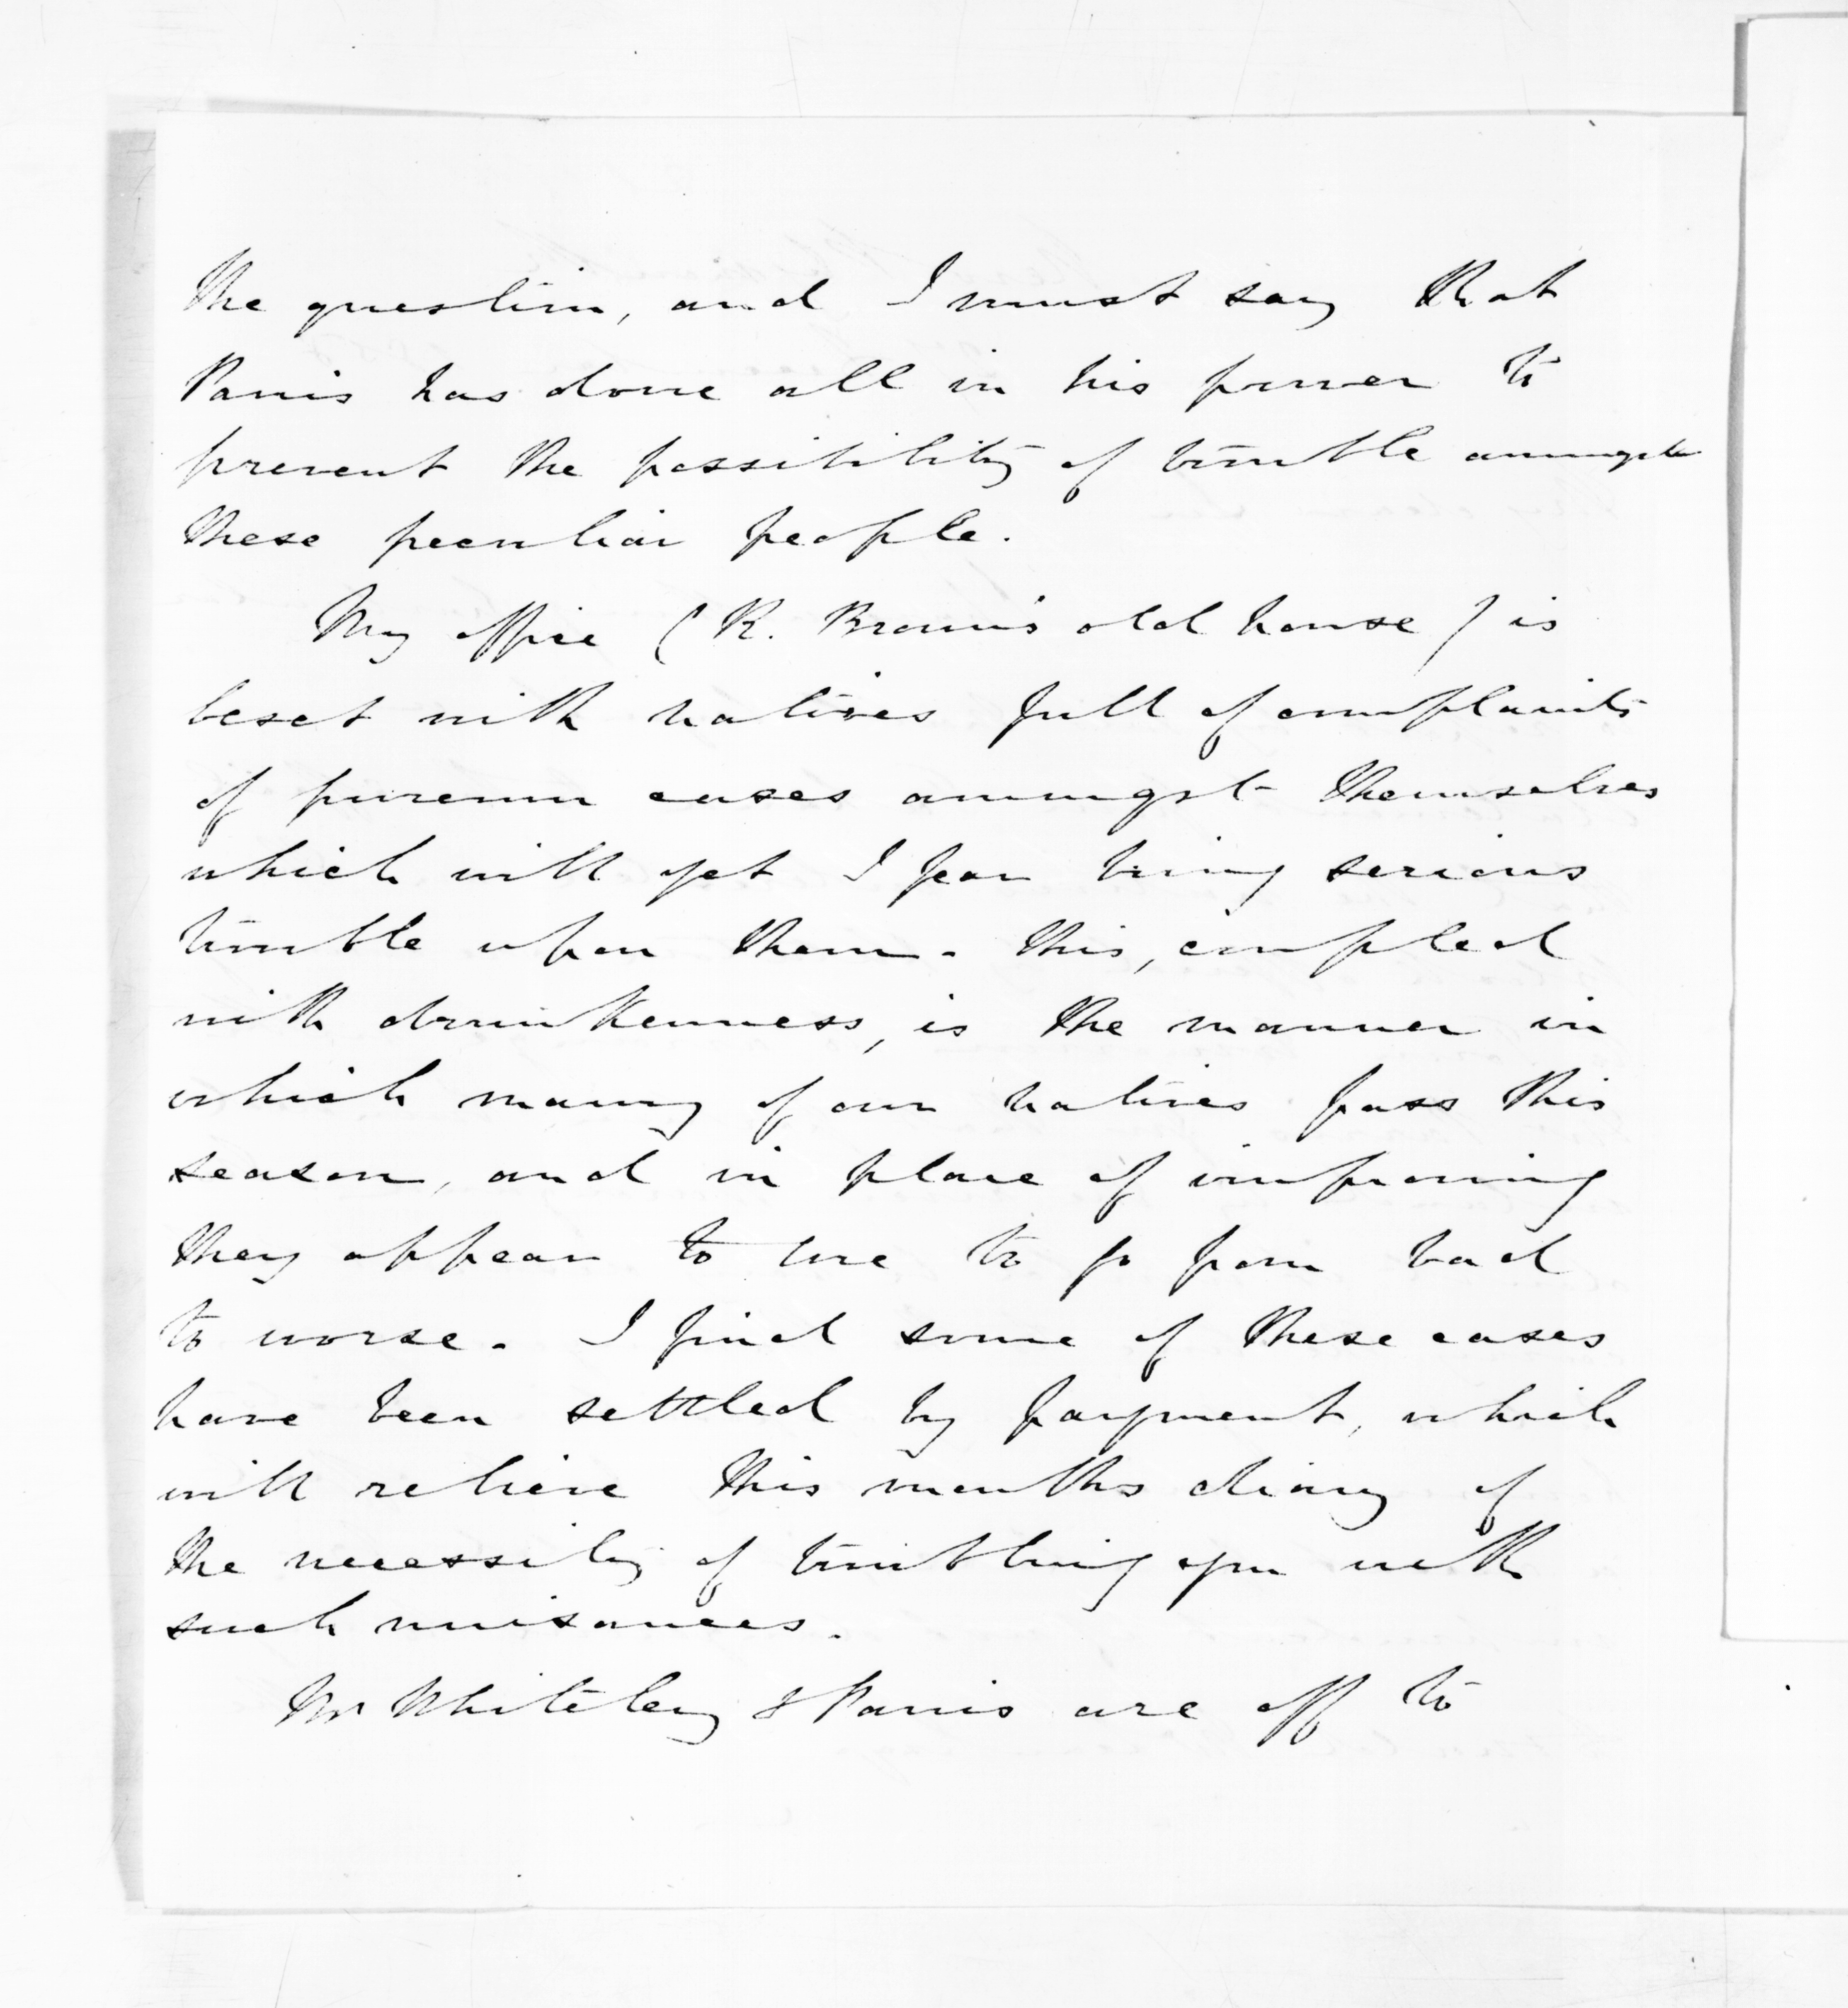 the question, and I must say that
Parris has done all in his power to
prevent the possibility of trouble amongst
these peculiar people.
My office (R. Brown's old house) is
beset with natives full of complaints
of puremu cases amongst themselves
which will yet I fear bring serious
trouble upon them. This, coupled
with drunkenness, is the manner in
which many of our natives pass this
season, and in place of improving
they appear to me to go from bad
to worse. I find some of these cases
have been settled by payment, which
will relieve this months diary of
the necessity of troubling you with
such nuisances.
Mr Whiteley & Parris are off to